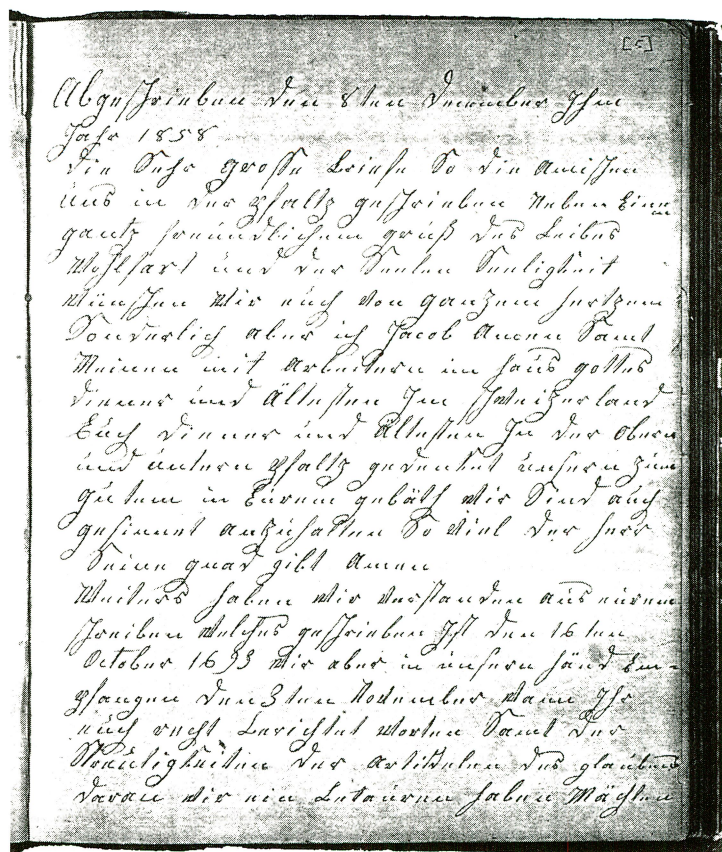 [5]
Abgeschrieben den 8ten December Ihm
Jahr 1858
die Sehr grosse briefe So die Amischen
uns in der pfaltz geschrieben Neben Einem
gantz freündlichem gruß des Leibes
Wohlfart und der Seelen Seeligkeit
Wünschen Wir euch von ganzem hertzem
Sonderlich aber ich Jacob Amen Samt
Meinen mit Arbeitern im haus gottes
diener und Ältesten Im schweizerland
Euch diener und Ältesten In der Obern
und untern pfaltz gedenket unsern zum
gutem in Eurem gebäth Wir Sind auch
gesinnet anzuhalten So Viel der herr
Seine gnad gibt Amen
Weiters haben Wir Verstanden aus eurem
schreiben Welches geschrieben Ist den 16 ten
October 1693 Wir aber in unsern händ Em-
pfangen den 3 ten November Wann Ihr
euch recht berichtet Worten Samt der
Streutigkeiten der Artikelen des glaubens
daran Wir ein betauren haben Möchten